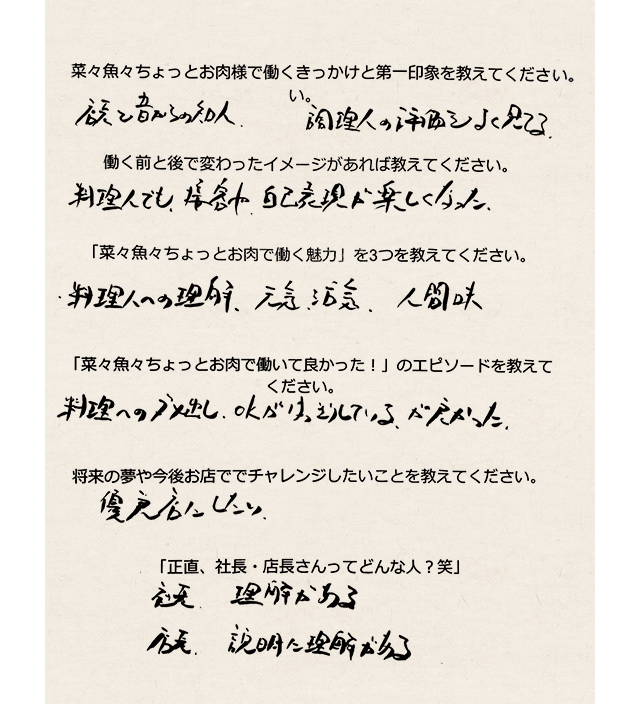 菜々魚々ちょっとお肉様で働くきっかけと第一印象を教えてください。
い。
昔からの知人. 調理人の評価をよく見てる.
働く前と後で変わったイメージがあれば教えてください。
料理人でも、接客や、自己表現が楽しくなった、
「菜々魚々ちょっとお肉で働く魅力」を3つを教えてください。
・料理人への理解、元気、活気、人間味
「菜々魚々ちょっとお肉で働いて良かった！」のエピソードを教えて
ください。
料理へのダメ出し、OKがはっきりしている、が良かった、
将来の夢や今後お店ででチャレンジしたいことを教えてください。
優良店にしたい、
「正直、社長・店長さんってどんな人？笑」
社長. 理解がある
店長. 説明に理解がある